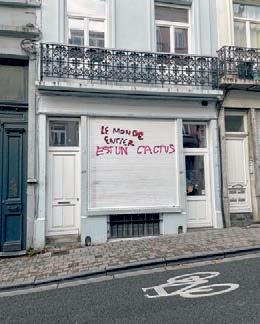 LE MONDE
ENTIER
EST UN CACTUS